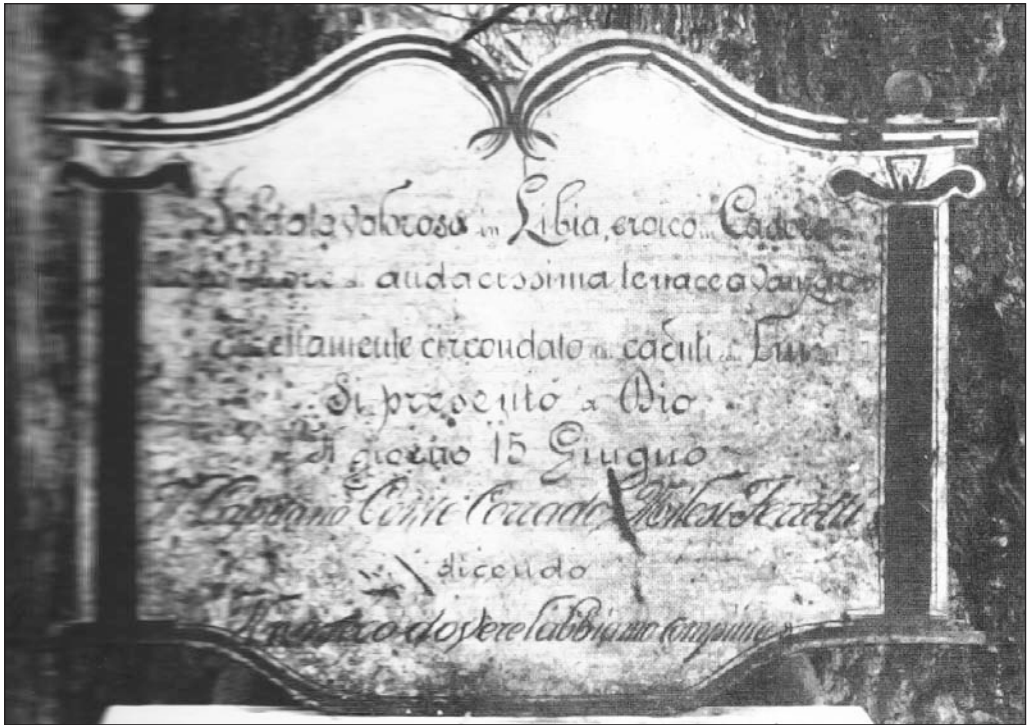 Soldato valoroso in Libia, eroico in Cadore
audacissima tenace avanzata
circondato da caduti
Si presentò a Dio
Il giorno 15 Giugno
Il Capitano Conte Corrado Ferretti
dicendo
Il nostro dovere l'abbiamo compiuto